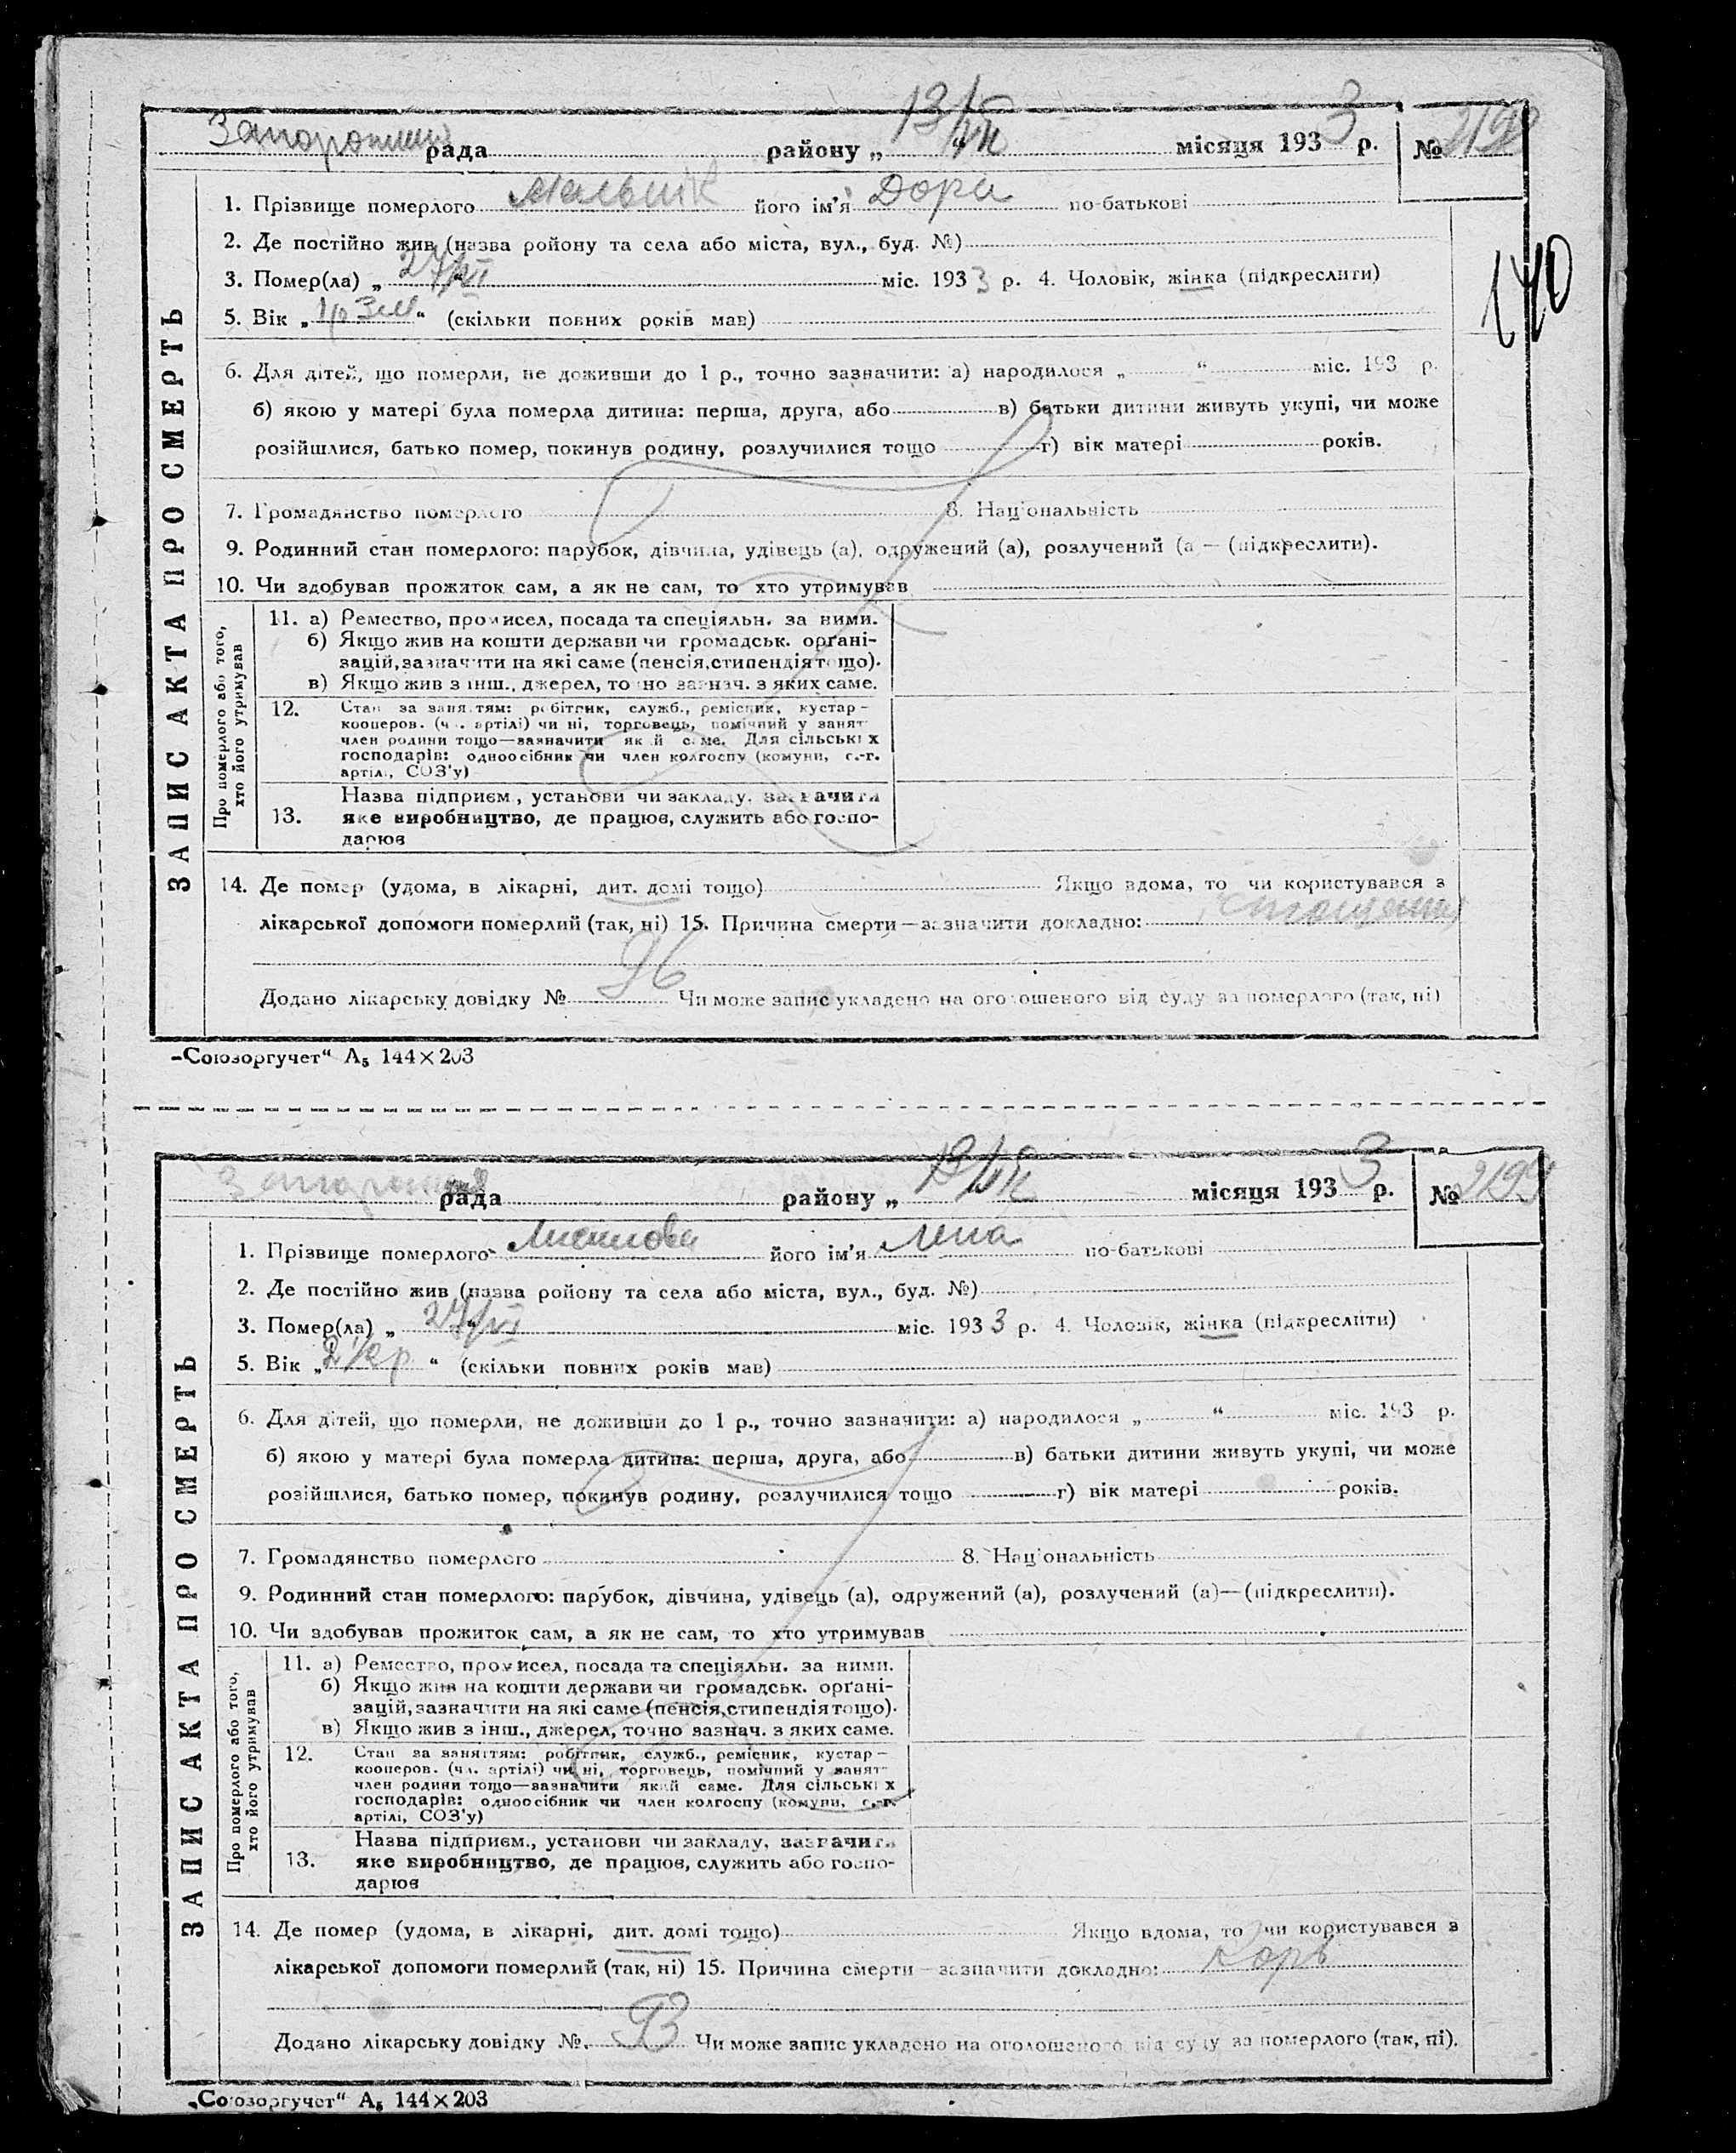 рада району „ 13/VII місяця 1933 р. №
1. Прізвище померлого Мельник його ім'я Дора по-батькові
2. Де постійно жив (назва ройону та села або міста, вул., буд. №)
3. Помер(ла) „ 27/VI “ міс. 1933 р. 4. Чоловік, жінка (підкреслити)
5. Вік „ “ (скільки повних років мав)
6. Для дітей, що померли, не доживши до 1 р., точно зазначити: а) народилося „ “ міс. 193 р.
б) якою у матері була померла дитина: перша, друга, або в) батьки дитини живуть укупі, чи може
розійшлися, батько помер, покинув родину, розлучилися тощо г) вік матері років.
7. Громадянство померлого 8. Національність
9. Родинний стан померлого: парубок, дівчина, удівець (а), одружений (а), розлучений (а — (підкреслити).
10. Чи здобував прожиток сам, а як не сам, то хто утримував
Про померлого або того, хто його утримував
11. а) Ремество, промисел, посада та спеціяльн. за ними.
б) Якщо жив на кошти держави чи громадськ. орґані-
зацій, зазначити на які саме (пенсія, стипендія тощо).
в) Якщо жив з інш., джерел, точно зазнач. з яких саме.
12. Стан за заняттям: робітник, служб., ремісник, кустар—
кооперов. (чл. артілі) чи ні, торговець, помічний у занят
член родини тощо—зазначити який саме. Для сільських
господарів: одноосібник чи член колгоспу (комуни, с.-г.
артілі, СОЗ'у)
Назва підприєм., установи чи закладу, зазначити
13. яке виробництво, де працює, служить або госпо-
дарює
14. Де помер (удома, в лікарні, дит. домі тощо) Якщо вдома, то чи користувався з
лікарської допомоги померлий (так, ні) 15. Причина смерти—зазначити докладно:
Додано лікарську довідку № 96 Чи може запис укладено на оголошеного від суду за померлого (так, ні)
ЗАПИС АКТА ПРО СМЕРТЬ
140
„Союзоргучет“ А₅ 144×203
рада району „ 13/VII місяця 1933 р. № 2199
1. Прізвище померлого його ім'я Лена по-батькові
2. Де постійно жив (назва ройону та села або міста, вул., буд. №)
3. Помер(ла) „ 27/VI “ міс. 1933 р. 4. Чоловік, жінка (підкреслити)
5. Вік „ 2 1/2 р “ (скільки повних років мав)
6. Для дітей, що померли, не доживши до 1 р., точно зазначити: а) народилося „ “ міс. 193 р.
б) якою у матері була померла дитина: перша, друга, або в) батьки дитини живуть укупі, чи може
розійшлися, батько помер, покинув родину, розлучилися тощо г) вік матері років.
7. Громадянство померлого 8. Національність
9. Родинний стан померлого: парубок, дівчина, удівець (а), одружений (а), розлучений (а)—(підкреслити).
10. Чи здобував прожиток сам, а як не сам, то хто утримував
Про померлого або того, хто його утримував
11. а) Ремество, промисел, посада та спеціяльн. за ними.
б) Якщо жив на кошти держави чи громадськ. орґані-
зацій, зазначити на які саме (пенсія, стипендія тощо).
в) Якщо жив з інш., джерел, точно зазнач. з яких саме.
12. Стан за заняттям: робітник, служб., ремісник, кустар—
кооперов. (чл. артілі) чи ні, торговець, помічний у занят
член родини тощо—зазначити який саме. Для сільських
господарів: одноосібник чи член колгоспу (комуни, с.-г.
артілі, СОЗ'у)
Назва підприєм., установи чи закладу, зазначити
13. яке виробництво, де працює, служить або госпо-
дарює
14. Де помер (удома, в лікарні, дит. домі тощо) Якщо вдома, то чи користувався з
лікарської допомоги померлий (так, ні) 15. Причина смерти—зазначити докладно: Корь
Додано лікарську довідку №. 93 Чи може запис укладено на оголошеного від суду за померлого (так, ні).
ЗАПИС АКТА ПРО СМЕРТЬ
„Союзоргучет“ А₅ 144×203